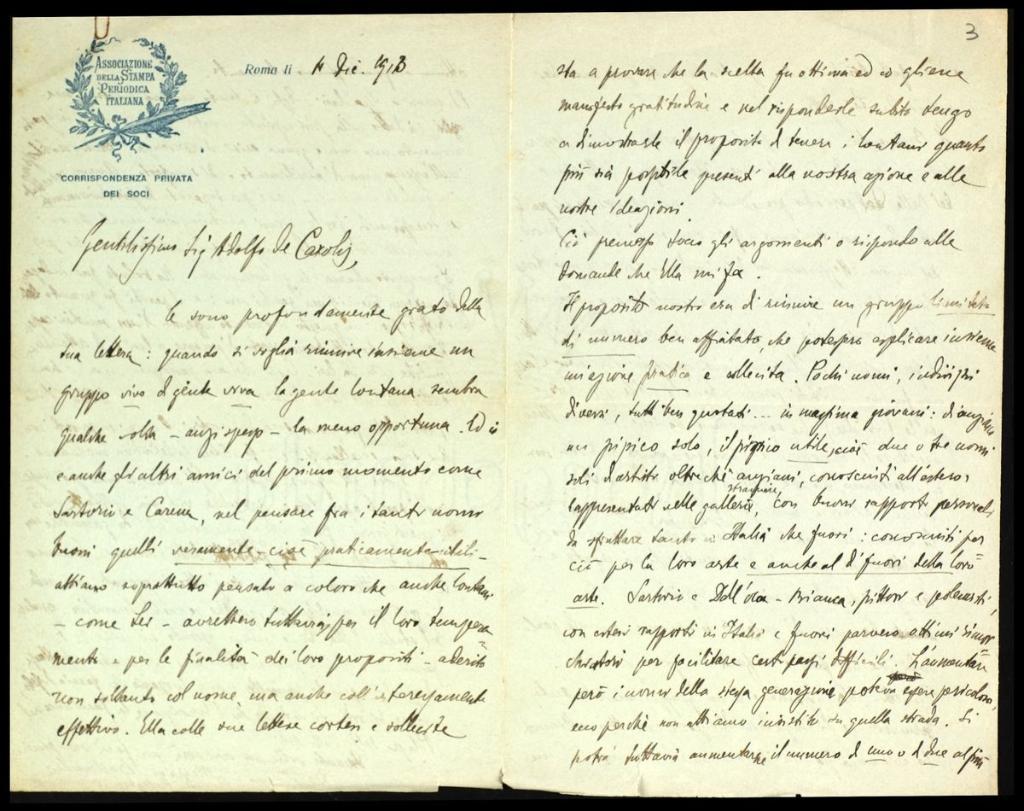 3
ASSOCIAZIONE
DELLA STAMPA
PERIODICA
ITALIANA
Roma li 11 Dic. 1913
CORRISPONDENZA PRIVATA
DEI SOCI
Gentilissimo Sig Adolfo De Carolis,
le sono profondamente grato della
sua lettera: quando si voglia riunire insieme un
gruppo vivo di gente viva la gente lontana sembra
qualche volta - anzi spesso - la meno opportuna. Ed io
e anche gli altri amici del primo momento come
Sartorio e Carena, nel pensare fra i tanti nomi
buoni quelli veramente - cioè praticamente - utili -
abbiamo soprattutto pensato a coloro che anche lontani
- come Lei - avrebbero tuttavia, per il loro tempera=
mento e per le finalità dei loro propositi - aderito
non soltanto col nome, ma anche coll'interessamento
effettivo. Ella colle sue lettere cortesi e sollecite
sta a provare che la scelta fu ottima ed io gliene
manifesto gratitudine e nel risponderle subito tengo
a dimostrarle il proposito di tenere i lontani quanto
più sia possibile presenti alla nostra azione e alle
nostre ideazioni.
Ciò premesso tocco gli argomenti o rispondo alle
domande che Ella mi fa.
Il proposito nostro era di riunire un gruppo limitato
di numero ben affiatato, che potesse esplicare insieme
un'azione pratica e sollecita. Pochi nomi, indirizzi
diversi, tutti ben gustati... in massima giovani: di anziani
un pizzico solo, il pizzico utile, cioè due o tre nomi
soli di artisti oltre che anziani, conosciuti all'estero,
rappresentati nelle gallerie straniere, con buoni rapporti personali
da sfruttare tanto in Italia che fuori: conosciuti per
ciò per la loro arte e anche al di fuori della loro
arte. Sartorio e Dall'Oca-Bianca, pittori e polemisti,
con estesi rapporti in Italia e fuori parvero ottimi
per facilitare certi passi difficili. L'aumentare
però i nomi della stessa generazione poteva essere pericoloso,
ecco perchè non abbiamo insistito su quella strada. Si
potrà tuttavia aumentarne il numero di uno o di due al più